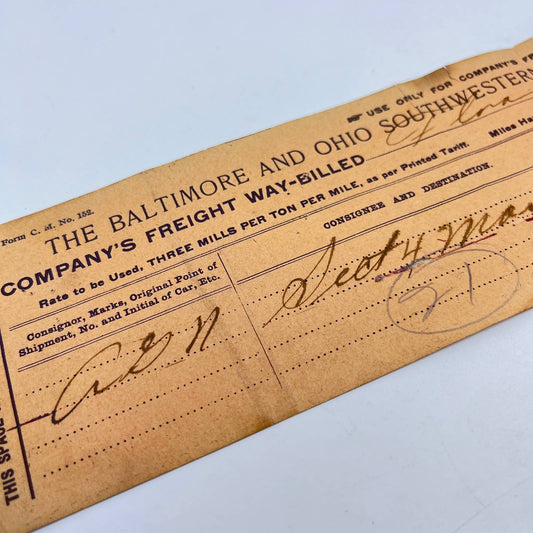 USE ONLY FOR COMPANY'S
Form C. M. No. 152.
THE BALTIMORE AND OHIO SOUTHWESTERN
COMPANY'S FREIGHT WAY-BILLED
Rate to be Used, THREE MILLS PER TON PER MILE, as per Printed Tariff. Miles
Consignor, Marks, Original Point of
Shipment, No. and Initial of Car, Etc.
CONSIGNEE AND DESTINATION.
Sect 4
21
THIS SPACE